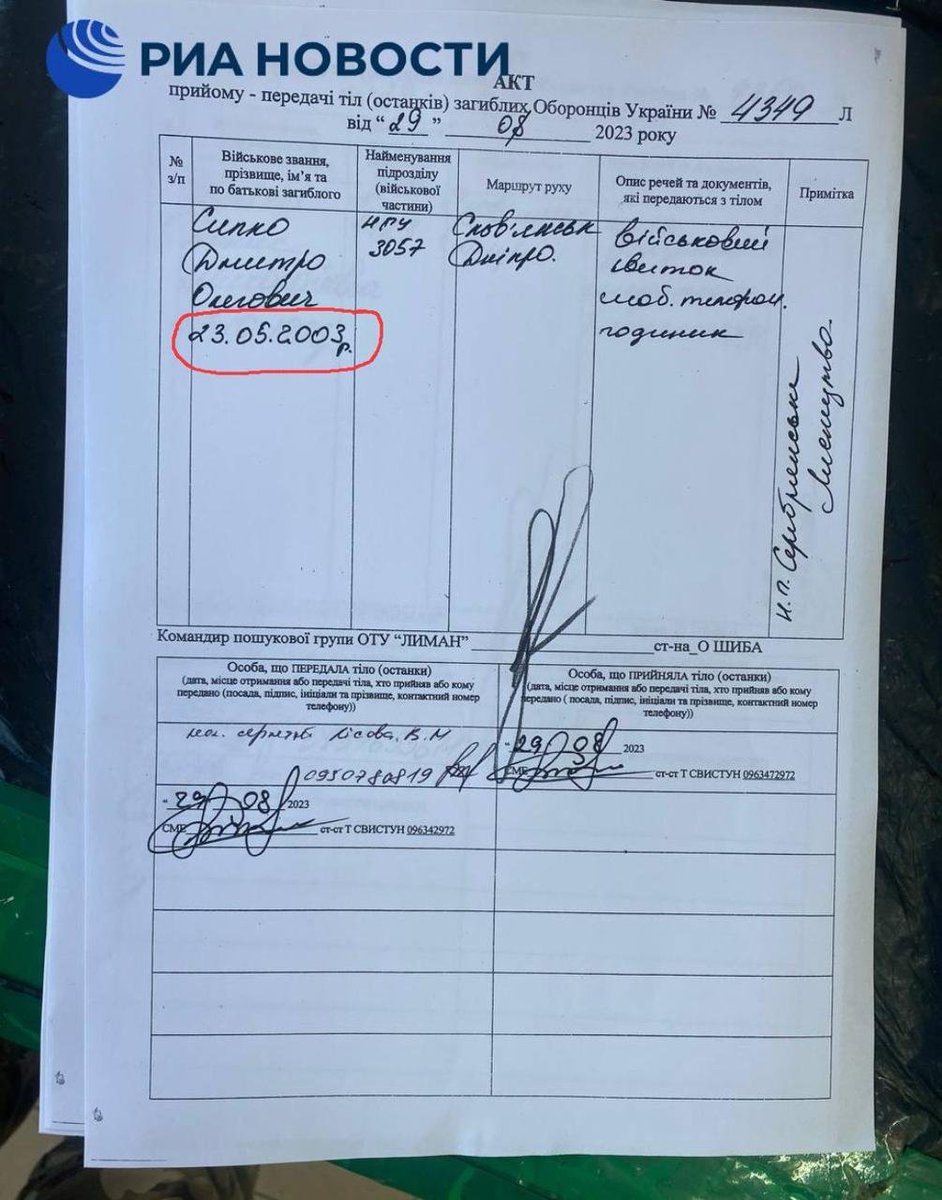 РИА НОВОСТИ
АКТ
прийому - передачі тіл (останків) загиблих Оборонців України № 4349 Л
від “ 29 ” 08 2023 року
№ з/п
Військове звання, прізвище, ім’я та по батькові загиблого
Найменування підрозділу (військової частини)
Маршрут руху
Опис речей та документів, які передаються з тілом
Примітка
Сипко
Дмитро
Олегович
23.05.2003р.
НГУ
3057
Слов'янськ
Дніпро.
військовий
квиток
моб. телефон.
годиник
н.п. Серебрянське
Лісництво.
Командир пошукової групи ОТУ “ЛИМАН” ст-на_О ШИБА
Особа, що ПЕРЕДАЛА тіло (останки)
(дата, місце отримання або передачі тіла, хто прийняв або кому
передано (посада, підпис, ініціали та прізвище, контактний номер
телефону))
Особа, що ПРИЙНЯЛА тіло (останки)
(дата, місце отримання або передачі тіла, хто прийняв або кому
передано ( посада, підпис, ініціали та прізвище, контактний номер
телефону))
0950780819
“ 29 ” 08 2023
СМЕ ст-ст Т СВИСТУН 0963472972
“ 29 ” 08 2023
СМЕ ст-ст Т СВИСТУН 096342972